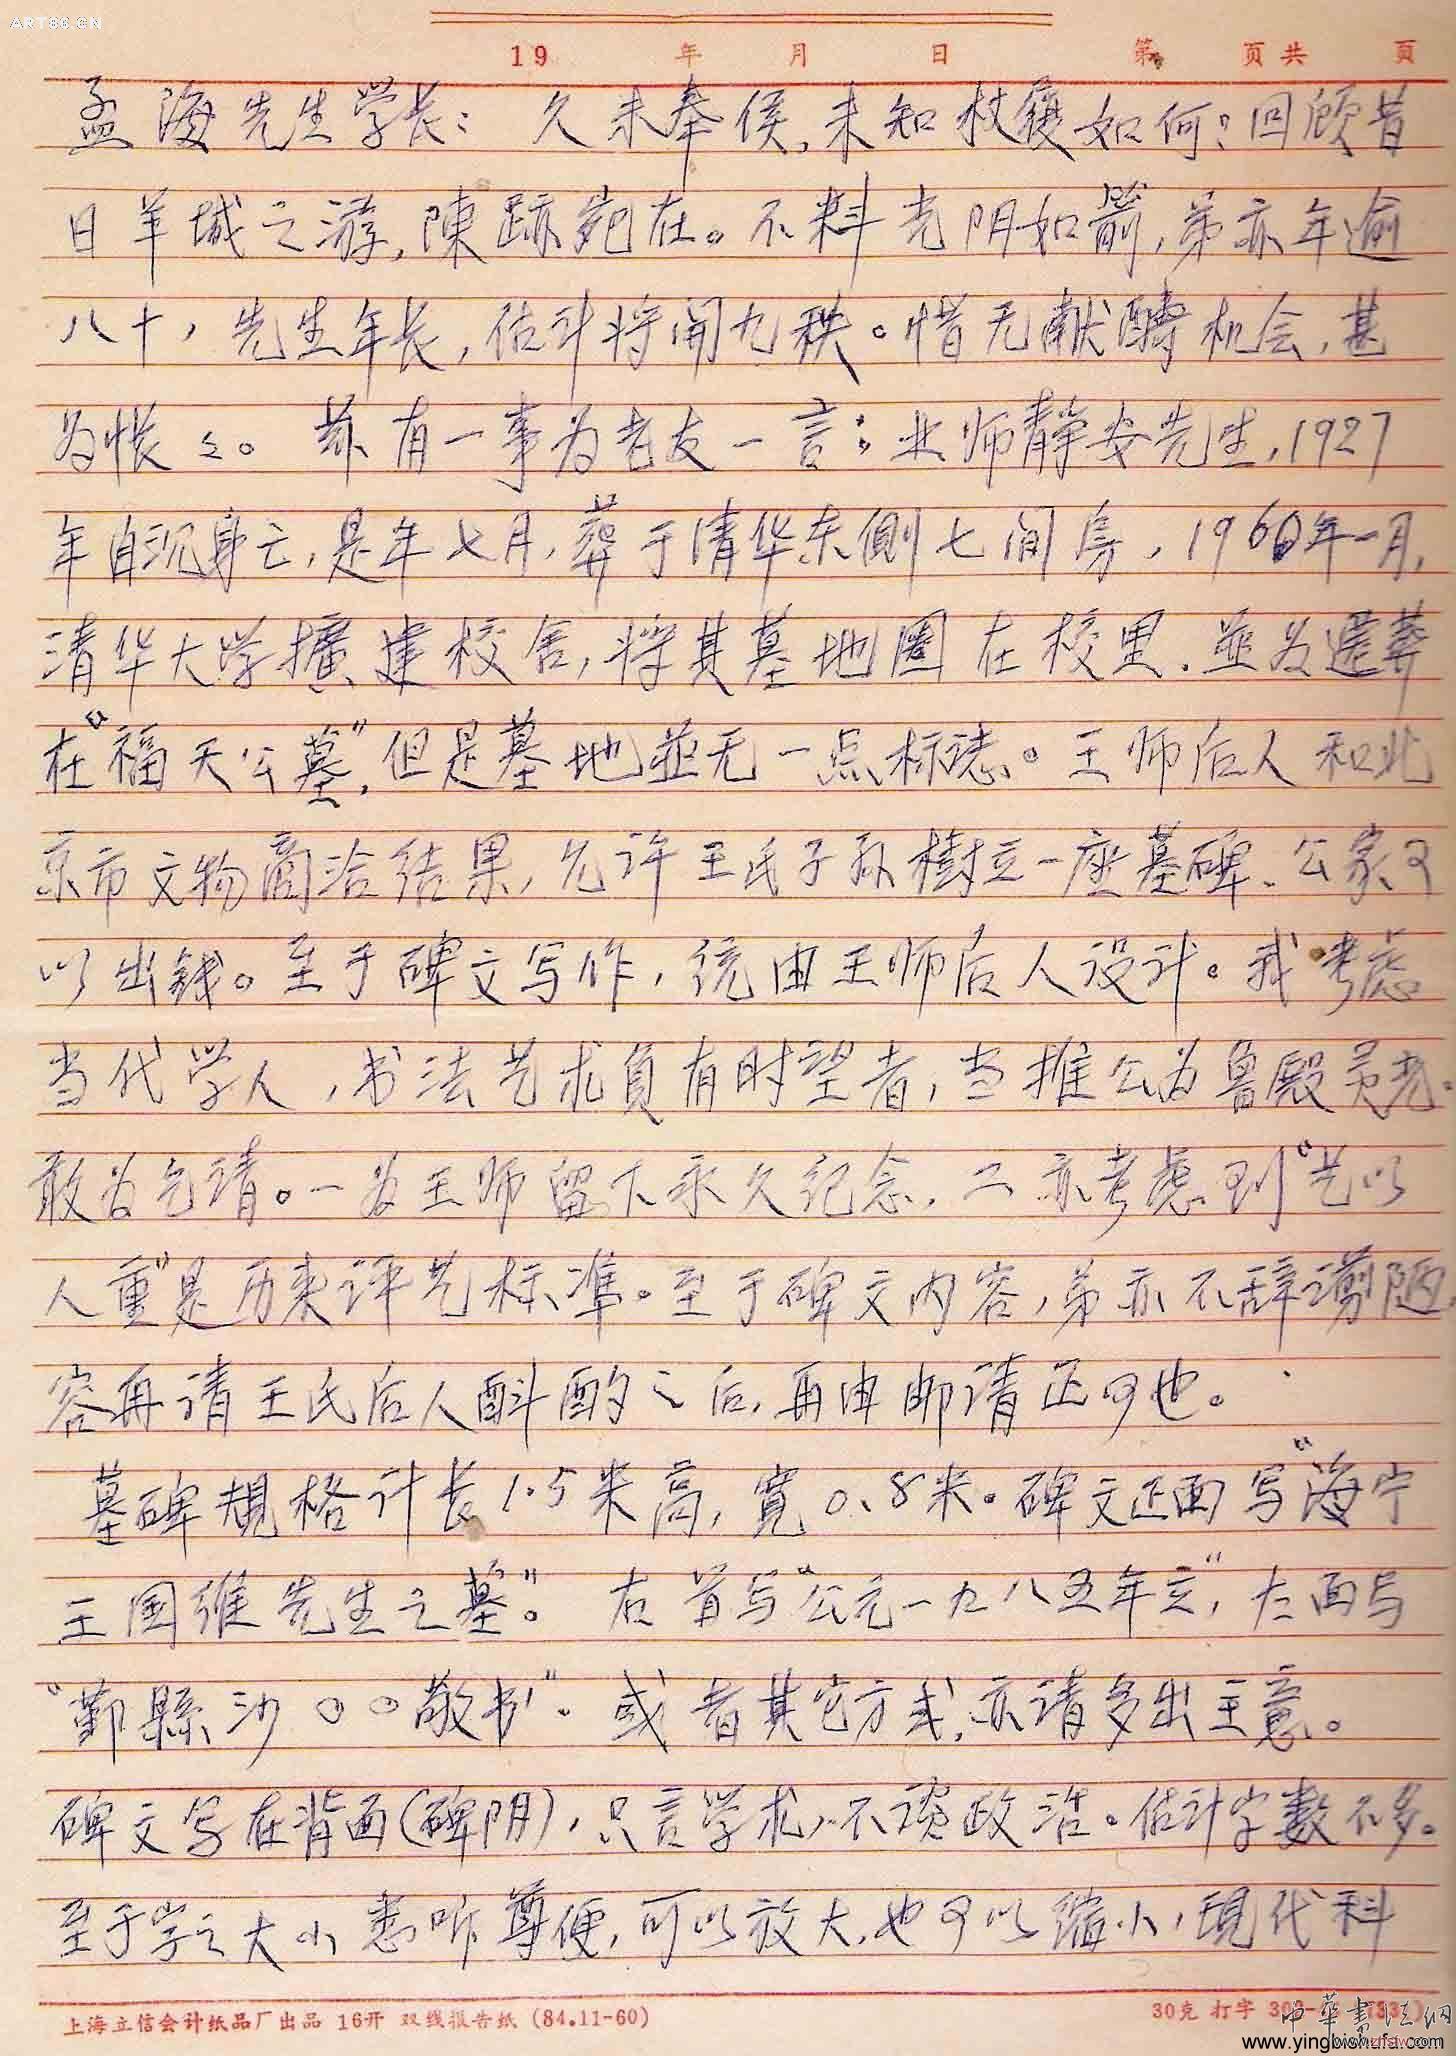 ART86.CN
19 年 月 日 第 页共 页
孟海先生学长：久未奉候，未知杖履如何？回顾昔
日羊城之游，陳跡宛在。不料光阴如箭，弟亦年逾
八十，先生年长，估计将開九秩。惜无献醻机会，甚
为怅々。兹有一事为老友一言：业师静安先生，1927
年自沉身亡，是年七月，葬于清华东侧七间房，1960年一月，
清华大学擴建校舍，将其墓地圈在校里，並为遷葬
在“福天公墓”，但是墓地並无一点标誌。王师后人和北
京市文物商洽结果，允许王氏子孙樹立一座墓碑、公家可
以出錢。至于碑文写作，统由王师后人设计。我考虑
当代学人，书法艺术負有时望者，当推公为鲁殿灵光。
敢为乞请。一为王师留下永久纪念，二亦考虑到“艺以
人重”是历来评艺标準。至于碑文内容，弟亦不辞谫陋，
容再请王氏后人斟酌之后，再由邮请正可也。
墓碑規格计长1.5米高，寬0.8米。碑文正面写“海宁
王国维先生之墓”。右首写“公元一九八五年立”，左面写
“鄞縣沙〇〇敬书”。或者其它方式，亦请多出主意。
碑文写在背面（碑阴），只言学术，不谈政治。估计字数不多。
至于字之大小悉听尊便，可以放大，也可以缩小，現代科
上海立信会计纸品厂出品 16开 双线报告纸 (84.11-60)
30克 打字
中華書法网
www.yingbishufa.com